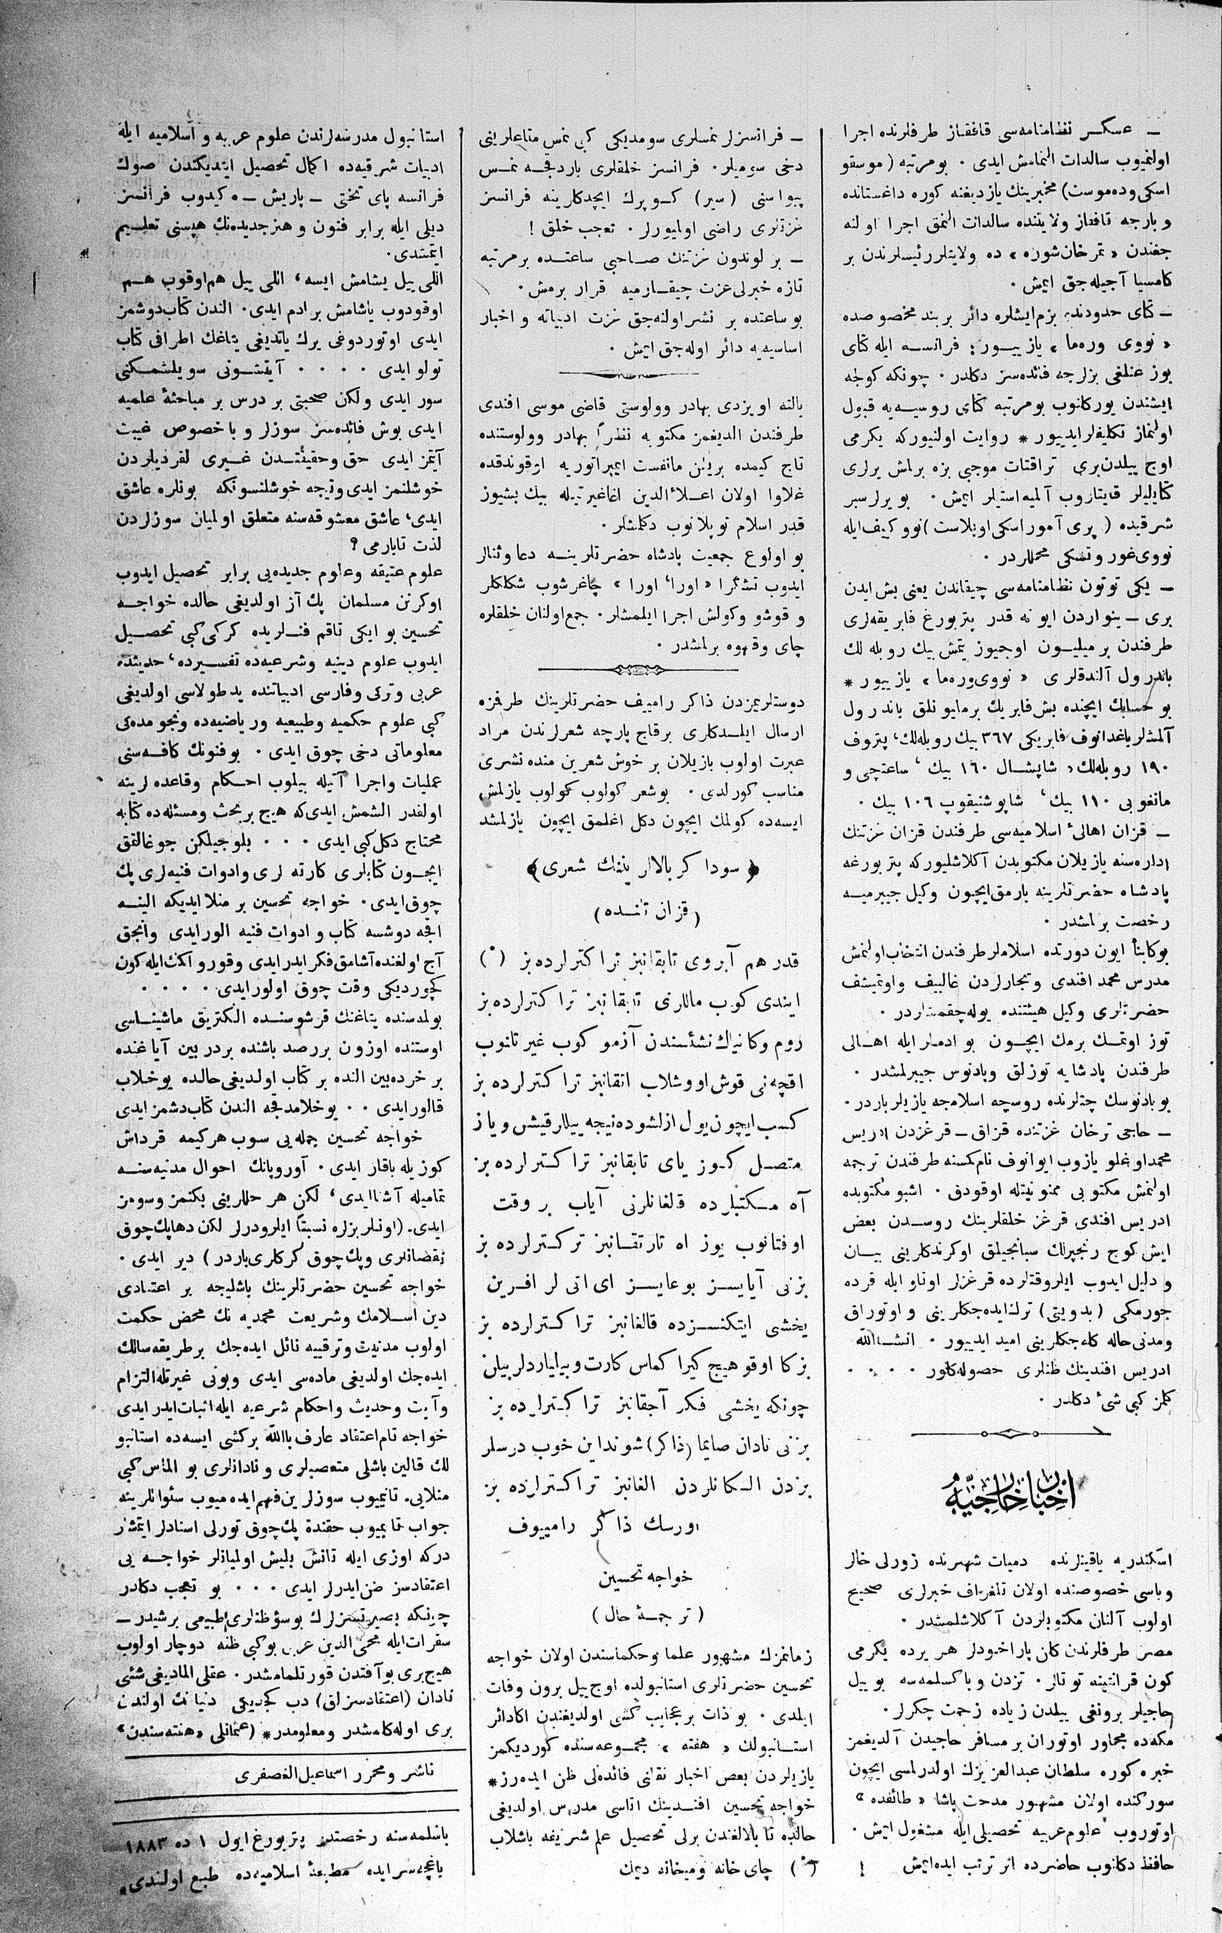 ـ عسكر نظامنامه‌سی قافقاز طرفلرنده اجرا
اولنمیوب سالدات النمامش ایدی . بومرتبه (موسقو
اسكی وده‌موست) مخبرینك یازدیغنه كوره داغستانده
و بارجه قافقاز ولایتنده سالدات النمق اجرا اولنه
جغندن «تمرخان شوره» ده ولایتلر رئیسلرندن بر
كامسیا آچیله جق ایمش .
ـ كتای حدودنده بزم ایشلره دائر بر بند مخصوصده
«نووی وره‌ما» یازییور : فرانسه ایله كتای
بوزغنلغی بزلرجه فائده‌سز دكلدر . چونكه كولجه
ایشندن یوركانوب بومرتبه كتای روسیه‌یه قبول
اولنماز تكلیفلر ایدییور * روایت اولنیوركه یكرمی
اوچ ییلدن بری تراقتات موجبی بزه برلمش یرلری
كتایلیلر قایتاروب آلمیه استیلر ایمش . بو یرلر سبر
شرقیده (پری آمورسكی اوبلاست) نووكییف ایله
نووی‌غورود‌سكی محللردر .
ـ یكی توتون نظامنامه‌سی چیقاندن یعنی بش ایدن
بری ـ ینواردن ایونه قدر پتربورغ فابریقه‌لری
طرفندن بر میلیون اوچیوز یتمش بیك روبله لك
باندرول آلندقلری «نووی‌وره‌ما» یازییور *
بو حسابك ایچنده بش فابریك برمایونلق باندرول
آلمشلر باغدانوف فابریكی ٣٦٧ بیك روبله‌لك، پتروف
١٩٠ روبله‌لك، شاپشال ١٦٠ بیك ، ساعتچی و
مانغوبی ١١٠ بیك ، شاپوشنیقوپ ١٠٦ بیك .
ـ قزان اهالئ اسلامیه‌سی طرفندن قزان غزتنك
اداره‌سنه یازیلان مكتوبدن آكلاشلیوركه پتربورغه
پادشاه حضرتلرینه بارمق ایچون وكیل جیبرمیه
رخصت برلمشدر .
بوكابنأ ایون دورتده اسلاملر طرفندن انتخاب اولنمش
مدرس محمد افندی و تجارلردن غالییف و اوتمیشف
حضرتلری وكیل هیئتنده یوله چقمشلردر .
توز اوتمك برمك ایچون بو ادملر ایله اهالی
طرفندن پادشایه توزلق و پادنوس جیبرلمشدر .
بو پادنوسك چتلرنده روسچه اسلامجه یازیلر باردر .
ـ حاجی ترخان غزتنده قزاق ـ قرغزدن ادریس
محمد اوغلو یازوب ایوانوف نام كسنه طرفندن ترجمه
اولنمش مكتوبی ممنونیتله اوقودق . اشبو مكتوبده
ادریس افندی قرغز خلقلرینك روسدن بعض
ایش كوج رنجپرلك سبانجیلق اوكرندكلرینی بیان
و دلیل ایدوب ایلروقتلرده قرغزلر اوناو ایله قرده
جورمكی (بدویتی) ترك ایده جكلرینی و اوتوراق
ومدنی حاله كله جكلرینی امید ایدییور . انشـاالله
ادریس افندینك ظنلری حصوله كلور . . . . .
كلمز كبی شئ دكلدر .
اخبار خارجیه
اسكندریه یاقینلرنده دمیات شهرنده زورلی خالر
و باسی خصوصنده اولان تلغراف خبرلری صحیح
اولوب آلنان مكتوبلردن آكلاشلمشدر .
مصر طرفلرندن كلن پاراخودلر هر یرده یكرمی
كون قرانتینه توتلر . تزدن وبا كسلمه‌سه بو ییل
حاجیلر بروقغی ییلدن زیاده زحمت چكرلر .
مكه‌ده مجاور اوتوران بر مسافر حاجیدن آلدیغمز
خبره كوره سلطان عبدالعزیزك اولدرلمسی ایچون
سوركنده اولان مشهور مدحت پاشا «طائفده»
اوتوروب علوم عربیه تحصیلی ایله مشغول ایمش .
حافظ دكلنوب حاضرده اثر ترتب ایده ایمش !
ـ فرانسزلر نمسلری سومدیكی كبی نمس متاعلرینی
دخی سومیلر . فرانسز خلقلری باردقچه نمس
پیواسنی (سیر) كوپرك ایچدكلرینه فرانسز
غزتلری راضی اولمیورلر . تعجب خلق !
ـ بر لوندون غزتنك صاحبی ساعتده برمرتبه
تازه خبرلی غزت چیقارمیه قرار برمش .
بو ساعتده بر نشر اولنه جق غزت ادبیاته و اخبار
اساسیه‌یه دائر اوله جق ایمش .
یالته اویزدی بهادر وولوستی قاضی موسی افندی
طرفندن الدیغمز مكتوبه نظراً بهادر وولوستنده
تاج كیمده بریلن مانفست ایمپراتوریه اوقوندقده
غلاوا اولان اعلاءالدین اغاغیرتیله بیك بشیوز
قدر اسلام توپلانوب دكلمشلر .
بو اولوغ جمعیت پادشاه حضرتلرینه دعا وثنالر
ایدوب تشكرا «اورا، اورا» چاغرشوب شكلكلر
و قوشو و كولش اجرا ایلمشلر . جمع اولنان خلقلره
چای وقهوه برلمشدر .
دوستلریمزدن ذاكر رامییف حضرتلرینك طرفزه
ارسال ایلدكلری برقاچ پارچه شعرلرندن مراد
عبرت اولوب یازیلان بر خوش شعرین منده نشری
مناسب كورلدی . بو شعر كولوب كولوب یازلمش
ایسه‌ده كولمك ایچون دكل اغلمق ایچون یازلمشد
﴿سوداكر بالالرینك شعری﴾
(قزان تلنده)
قدر هم آبروی تابقانبز تراكترلرده بز (*)
ایندی كوب ماللرنی تابقانبز تراكترلرده بز
روم وكانیاك نشئسندن آزمو كوب غیرتلانوب
اقچه‌نی قوش اووشلاب انقانبز تراكترلرده بز
كسب ایچون یول ازلشوده نیچه ییللر قیشن و یاز
متصل كوز یای تابقانبز تراكترلرده بز
آه مكتبلرده قالغانلرنی آیاب بر وقت
اوفتانوب یوز اه تارتقانبز تركترلرده بز
بزنی آیایسز بوعایسز ای اتی لر افرین
یخشی ایتكنسزده قالغانبز تراكترلرده بز
بزكا اوقو هیچ كیراكماس كارت و بیلیاردلر بیلن
چونكه یخشی فكر آچقانبز تراكترلرده بز
بزنی نادان صایما (ذاكر) شونداین خوب درسلر
بزدن الكانلردن الغانبز تراكترلرده بز
اورسك ذاكر رامییوف
خواجه تحسین
(ترجمهٔ حال)
زمانمزك مشهور علما وحكماسندن اولان خواجه
تحسین حضرتلری استانبولده اوچ ییل برون وفات
ایلدی . بو ذات بر عجایب كشی اولدیغندن اكادائر
استانبولك «هفته» مجموعه‌سنده كوردیكمز
یازیلردن بعض اخبار نقلنی فائده‌لی ظن ایده‌رز *
خواجه تحسین افندینك اتاسی مدرس اولدیغی
حالده تا بالالغندن برلی تحصیل علم شریفه باشلاب
(*) چای خانه ومیخانه دیمك
استانبول مدرسه‌لرندن علوم عربیه و اسلامیه ایله
ادبیات شرقیه‌ده اكمال تحصیل ایتدیكندن صوك
فرانسه پای تختی ـ پاریش ـ ه كیدوب فرانسز
دیلی ایله برابر فنون و هنرجدیده‌نك هپسنی تعلیم
ایتمشدی.
اللی ییل یشامش ایسه، اللی ییل هم اوقوب هم
اوقودوب یاشامش بر ادم ایدی . الندن كتاب دوشمز
ایدی اوتوردوغی یرك یاتدیغی یتاغك اطرافی كتاب
تولو ایدی . . . . آیتشونی سویلشمكنی
سور ایدی ولكن صحبتی بر درس بر مباحثهٔ علمیه
ایدی بوش فائده‌سز سوزلر و باخصوص غیبت
آیتمز ایدی حق وحقیقتدن غیری لقردیلردن
خوشلنمز ایدی ونیچه خوشلنسونكه بونلره عاشق
ایدی، عاشق معشوقه‌سنه متعلق اولمیان سوزلردن
لذت تابارمی ؟
علوم عتیقه وعلوم جدیده‌یی برابر تحصیل ایدوب
اوكرنن مسلمان پك آز اولدیغی حالده خواجه
تحسین بو ایكی تاقم فنلریده كركی كبی تحصیل
ایدوب علوم دینیه وشرعیه‌ده تفسیرده، حدیثده
عربی وتركی وفارسی ادبیاتنده ید طولاسی اولدیغی
كبی علوم حكمیه وطبیعیه وریاضیه‌ده ونجومده‌كی
معلوماتی دخی چوق ایدی . بو فنونك كافه‌سنی
عملیات واجرا آتیله بیلوب احكام وقاعده لرینه
اولقدر الشمش ایدی كه هیچ بر بحث ومسئله‌ده كتابه
محتاج دكل كبی ایدی . . . بلوجیلكن جوغالتمق
ایچون كتابلری كارته لری وادوات فنیه‌لری پك
چوق ایدی . خواجه تحسین بر منلا ایدیكه الینه
اقچه دوشسه كتاب و ادوات فنیه الور ایدی وانجق
آچ اولغنده آشامق فكر ایدر ایدی و قورو اكمك ایله كون
كچوردیكی وقت چوق اولور ایدی . . . .
بولمه‌سنده یتاغنك قرشوسنده الكتریق ماشیناسی
اوستنده اوزون بر رصد باشنده بر دربین آیاغنده
بر خرده‌بین النده بر كتاب اولدیغی حالده یوخلاب
قالور ایدی . . یوخلامدقچه الندن كتاب دشمز ایدی
خواجه تحسین جمله‌یی سوب هركیمه قرداش
كوزیله باقار ایدی . آوروپانك احوال مدنیه‌سنه
تمامیله آشنا ایدی، لكن هر حللرینی بكنمز وسومز
ایدی. (اونلر بزلره نسبتاً ایلرودرلر لكن دها پك چوق
نقصانلری وپك چوق كركلری باردر) دیر ایدی .
خواجه تحسین حضرتلرینك باشلیجه بر اعتقادی
دین اسلامك وشریعت محمدیه نك محض حكمت
اولوب مدنیت وترقییه نائل ایده‌جك بر طریقه سالك
ایده‌جك اولدیغی ماده‌سی ایدی وبونی غیرتله التزام
وآیت وحدیث واحكام شرعیه ایله اثبات ایدر ایدی
خواجه تام اعتقاد عارف باالله بر كشی ایسه‌ده استانبو
لك قالین باشلی متعصبلری و نادانلری بو الماس كبی
منلایی. تانیمیوب سوزلرین فهم ایده‌میوب سئواللرینه
جواب تابمیوب حقنده پك چوق تورلی اسنادلر ایتمشلر
دركه اوزی ایله تانش بلیش اولمیانلر خواجه یی
اعتقادسز ضن ایدرلر ایدی . . . بو تعجب دكلدر
چونكه بصیرتسزلرك بو سؤ ظنلری طبیعی بر شیدر ـ
سقرات ایله محی الدین عربی بو كبی ظنه دوچار اولوب
هیچ بری بو آفتدن قورتلمامشدر . عقلی المادیغی شئی
نادان (اعتقادسزلق) دب كچدیكی دنیانك اولندن
بری اوله كلمشدر ومعلومدر * (عثمانلی «هفته‌سندن»
ناشر ومحرر اسماعیل الغصفری
باصلمه‌سنه رخصتدر پتربورغ ایول ١ ده ١٨٨٣
باغچه‌سرایده مطبعهٔ اسلامیه‌ده طبع اولندی *